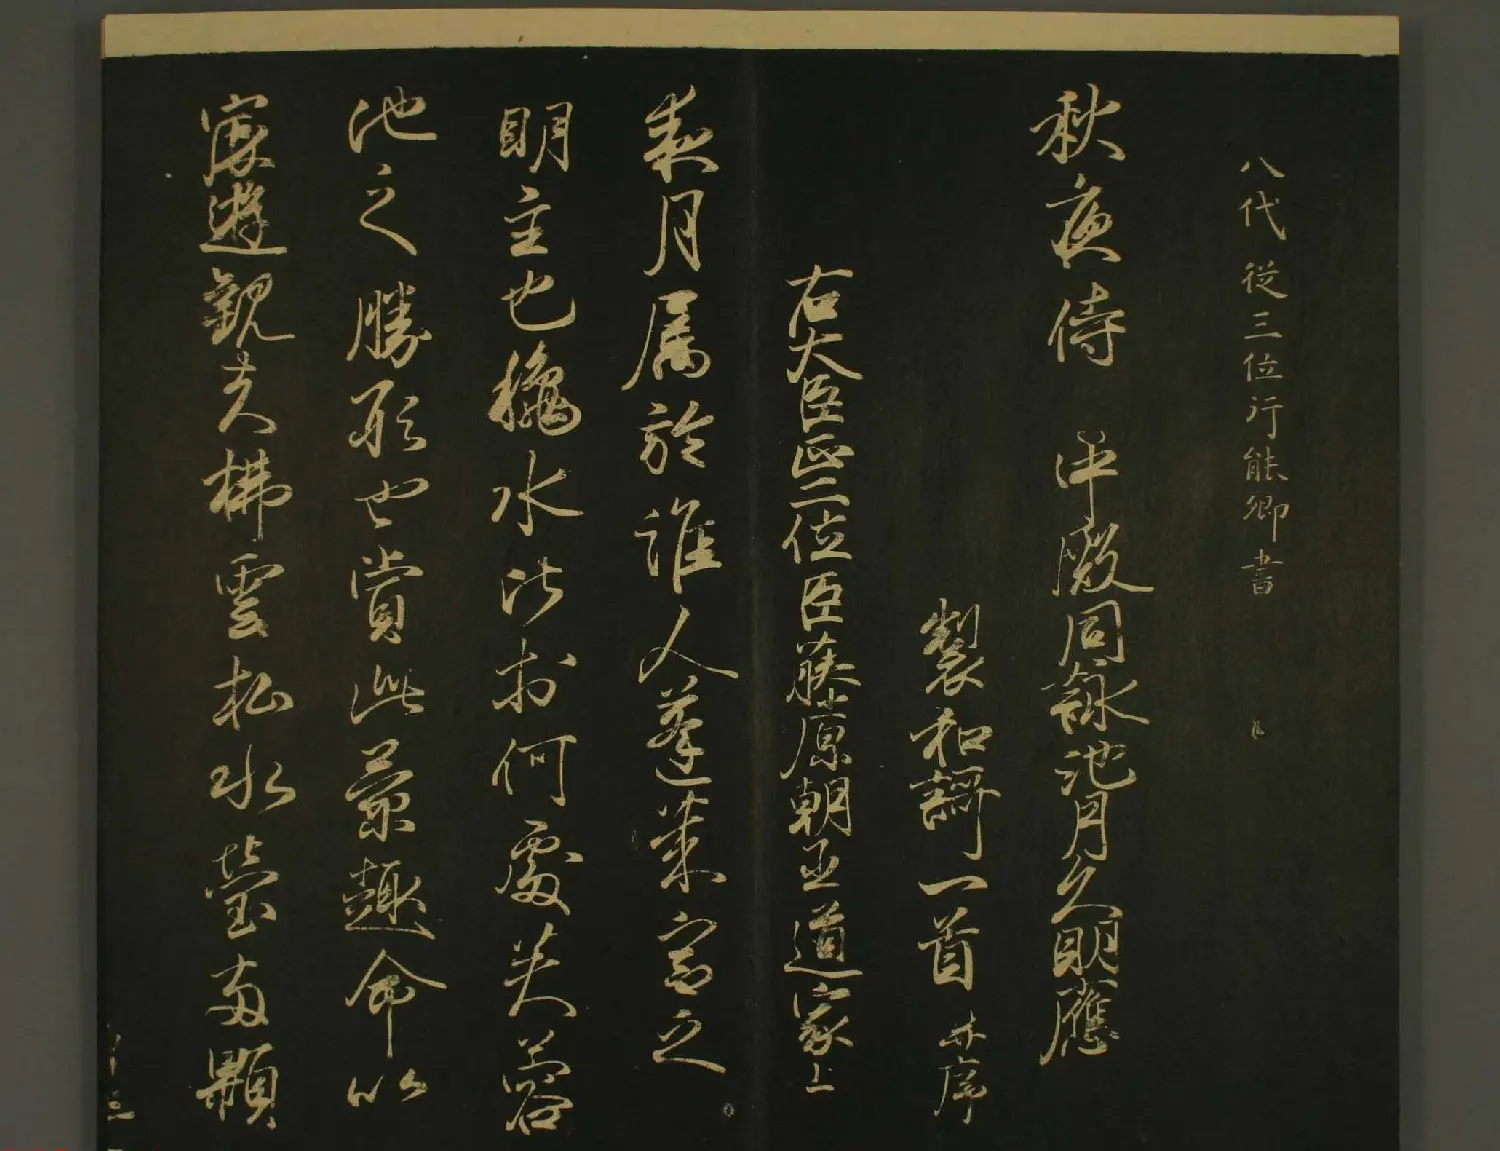 八代従三位行能卿書
秋夜侍 中殿同詠池月久明應
製和謌一首 并序
右大臣正二位臣藤原朝臣道家上
夫月属於誰人蓬莱宮之
明主也龝水澄於何處芙蓉
池之勝形也賞此景趣命以
宴遊觀夫拂雲松水蛍